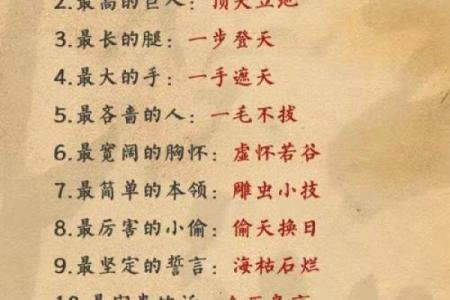 2.最高的巨人：顶天立地
3.最长的腿：一步登天
4.最大的手：一手遮天
5.最吝啬的人：一毛不拔
6.最宽阔的胸怀：虚怀若谷
7.最简单的本领：雕虫小技
8.最厉害的小偷：偷天换日
9.最坚定的誓言：海枯石烂